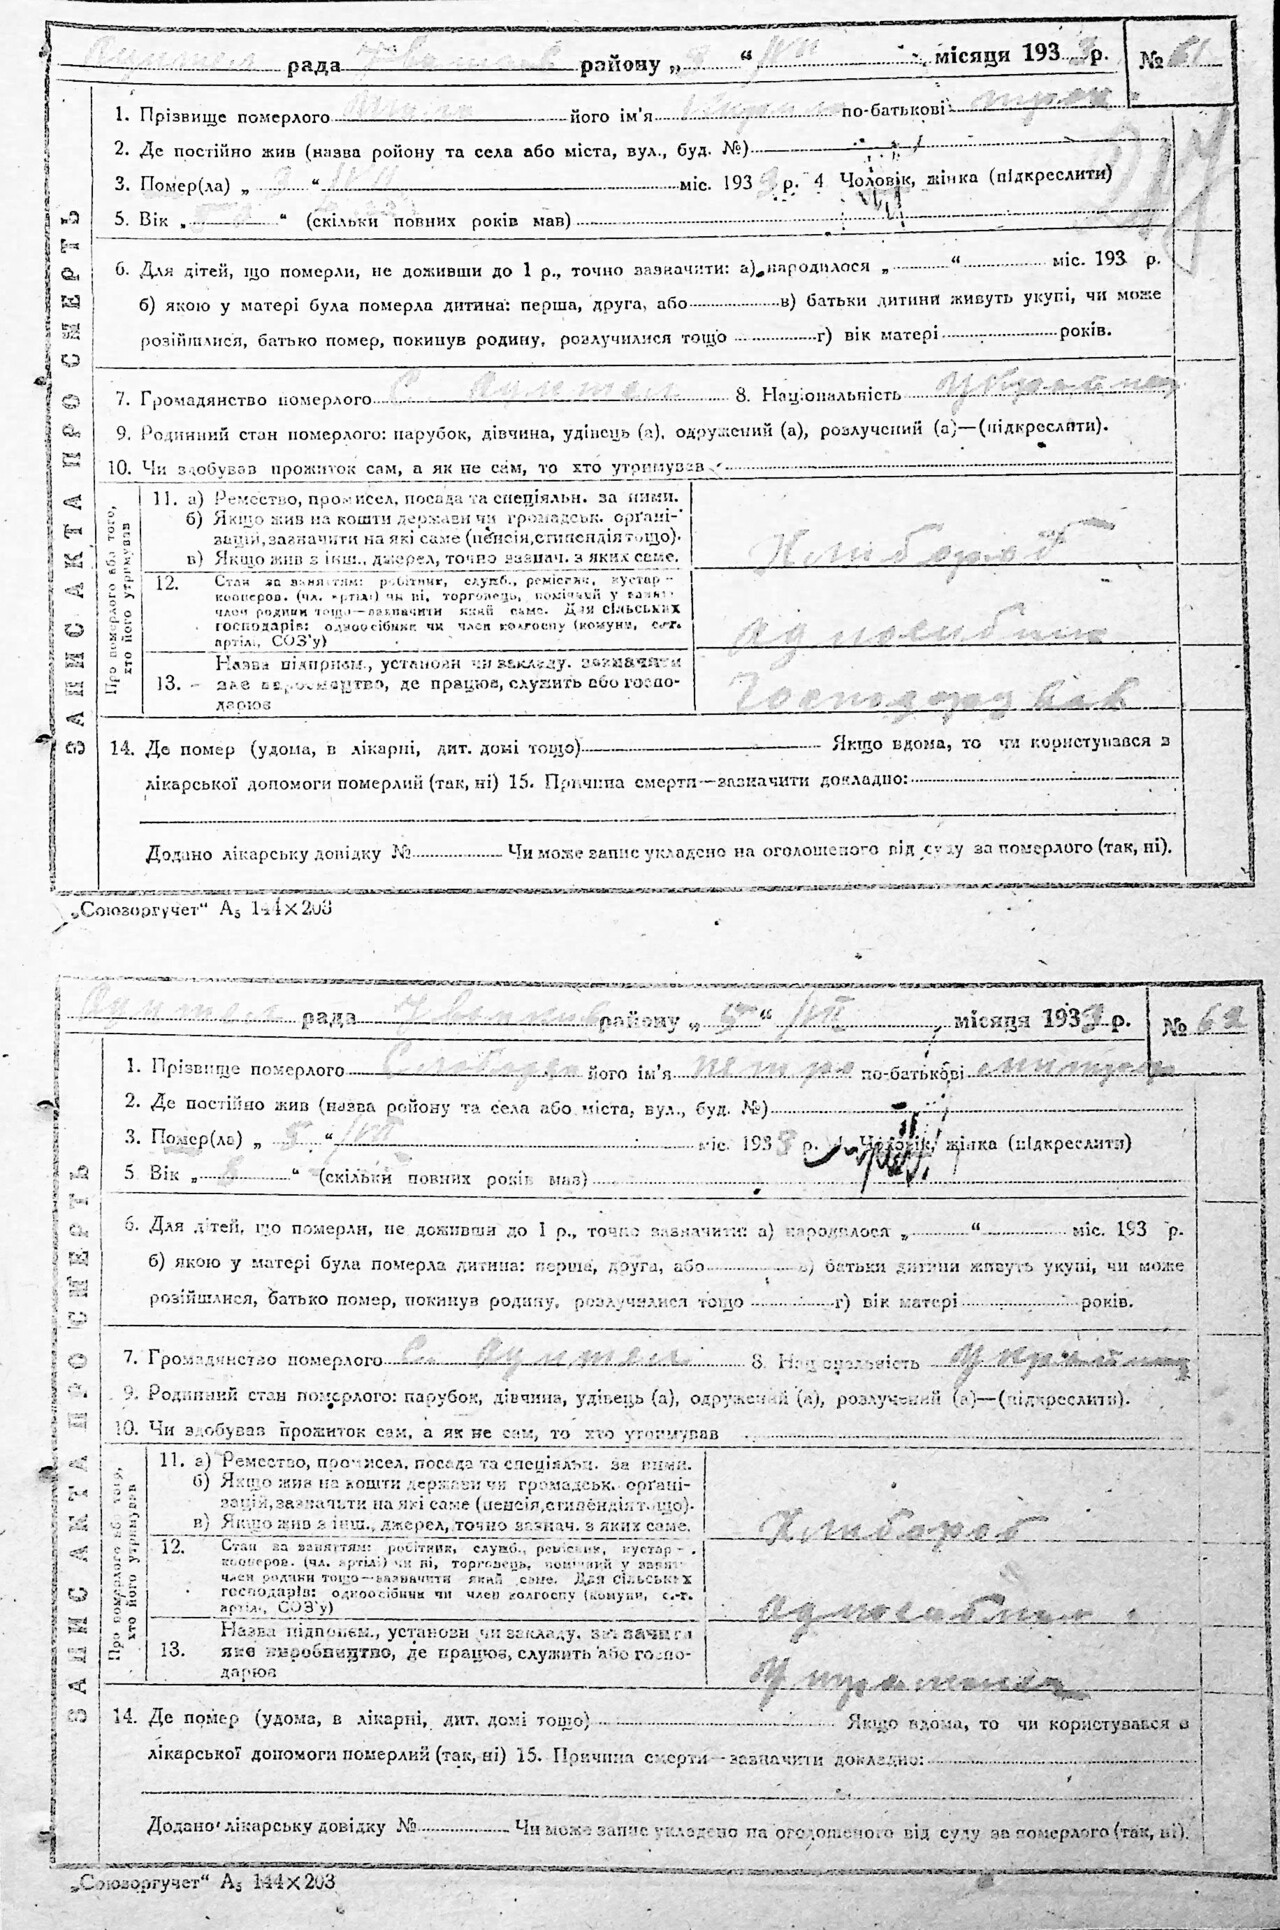 рада району „ “ /VII місяця 1933 р. № 61
1. Прізвище померлого його ім'я Кирило по-батькові
2. Де постійно жив (назва ройону та села або міста, вул., буд. №)
3. Помер(ла) „ “ міс. 1933 р. 4 Чоловік, жінка (підкреслити)
5. Вік „ “ (скільки повних років мав)
6. Для дітей, що померли, не доживши до 1 р., точно зазначити: а) народилося „ “ міс. 193 р.
б) якою у матері була померла дитина: перша, друга, або в) батьки дитини живуть укупі, чи може
розійшлися, батько помер, покинув родину, розлучилися тощо г) вік матері років.
7. Громадянство померлого С. 8. Національність Українец
9. Родинний стан померлого: парубок, дівчина, удівець (а), одружений (а), розлучений (а)—(підкреслити).
10. Чи здобував прожиток сам, а як не сам, то хто утримував
ЗАПИС АКТА ПРО СМЕРТЬ
Про померлого або того, хто його утримував
11. а) Ремество, промисел, посада та спеціяльн. за ними.
б) Якщо жив на кошти держави чи громадськ. орґані-
зацій, зазначити на які саме (пенсія, стипендія тощо).
в) Якщо жив з інш., джерел, точно зазнач. з яких саме.
Хлибороб
12. Стан за заняттям: робітник, служб., ремісник, кустар —
кооперов. (чл. артілі) чи ні, торговець, помічний у занят.
член родини тощо—зазначити який саме. Для сільських
господарів: одноосібник чи член колгоспу (комуни, с.-г.
артілі, СОЗ'у)
одноосибник
13. Назва підприєм., установи чи закладу, зазначити
яке виробництво, де працює, служить або госпо-
дарює
Господарував
14. Де помер (удома, в лікарні, дит. домі тощо) Якщо вдома, то чи користувався з
лікарської допомоги померлий (так, ні) 15. Причина смерти—зазначити докладно:
Додано лікарську довідку № Чи може запис укладено на оголошеного від суду за померлого (так, ні).
„Союзоргучет“ А5 144×203
рада району „ 5 “ /VII місяця 1933 р. № 62
1. Прізвище померлого його ім'я Петро по-батькові
2. Де постійно жив (назва ройону та села або міста, вул., буд. №)
3. Помер(ла) „ 5 “ /VII міс. 1933 р. 4 Чоловік, жінка (підкреслити)
5 Вік „ “ (скільки повних років маз)
6. Для дітей, що померли, не доживши до 1 р., точно зазначити: а) народилося „ “ міс. 193 р.
б) якою у матері була померла дитина: перша, друга, або в) батьки дитини живуть укупі, чи може
розійшлися, батько помер, покинув родину, розлучилися тощо г) вік матері років.
7. Громадянство померлого С. 8. Національність Українец
9. Родинний стан померлого: парубок, дівчина, удівець (а), одружений (а), розлучений (а)—(підкреслити).
10. Чи здобував прожиток сам, а як не сам, то хто утримував
ЗАПИС АКТА ПРО СМЕРТЬ
Про померлого або того, хто його утримував
11. а) Ремество, промисел, посада та спеціяльн. за ними.
б) Якщо жив на кошти держави чи громадськ. орґані-
зацій, зазначити на які саме (пенсія, стипендія тощо).
в) Якщо жив з інш., джерел, точно зазнач. з яких саме.
Хлибороб
12. Стан за заняттям: робітник, служб., ремісник, кустар —
кооперов. (чл. артілі) чи ні, торговець, помічний у занят.
член родини тощо—зазначити який саме. Для сільських
господарів: одноосібник чи член колгоспу (комуни, с.-г.
артілі, СОЗ'у)
одноосибник
13. Назва підприєм., установи чи закладу, зазначити
яке виробництво, де працює, служить або госпо-
дарює
14. Де помер (удома, в лікарні, дит. домі тощо) Якщо вдома, то чи користувався з
лікарської допомоги померлий (так, ні) 15. Причина смерти—зазначити докладно:
Додано лікарську довідку № Чи може запис укладено на оголошеного від суду за померлого (так, ні).
„Союзоргучет“ А5 144×203